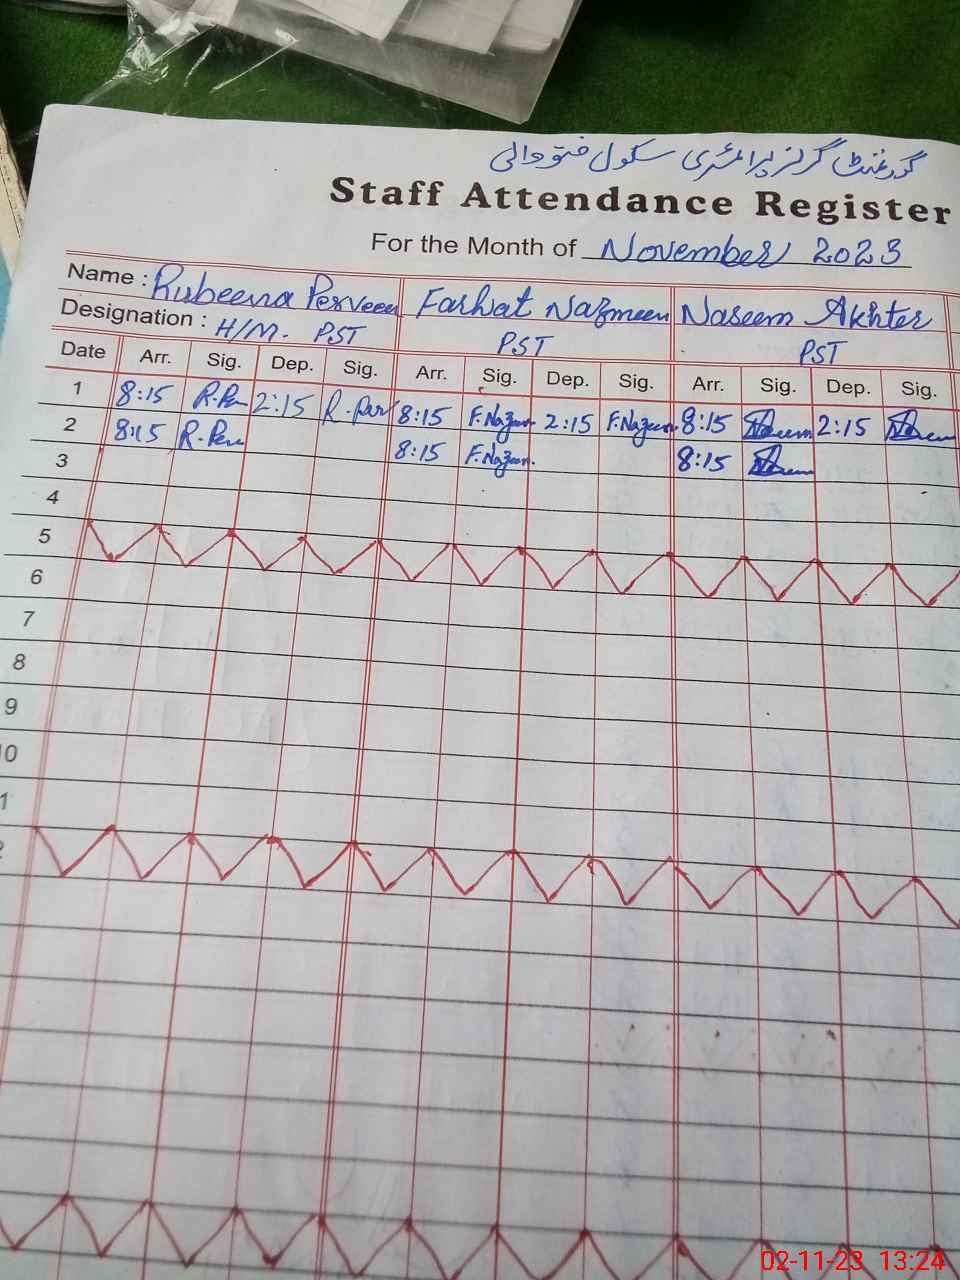 گورنمنٹ گرلز پرائمری سکول فتووالی
Staff Attendance Register
For the Month of November 2023
Name : Rubeena Perveen Farhat Nazmeen Naseem Akhter
Designation : H/M. PST PST PST
Date Arr. Sig. Dep. Sig. Arr. Sig. Dep. Sig. Arr. Sig. Dep. Sig.
1 8:15 R.Per 2:15 R.Per 8:15 F.Nazeen 2:15 F.Nazeen 8:15 2:15
2 8:15 R.Per 8:15 F.Nazeen. 8:15
3
4
5
6
7
8
9
10
1
2
02-11-23 13:24